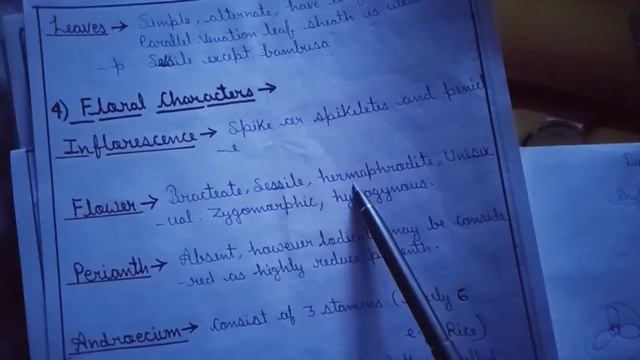 Leaves → Simple, alternate, have
Parallel Venation leaf sheath is
-p. Sessile except bambusa.
4) Floral Characters →
Inflorescence → Spike or spikeletes and penicl
-e
Flower → Bracteate, Sessile, hermaphrodite, Unisex
-ual. Zygomorphic, hypogynous.
Perianth → Absent, however lodic may be conside
-red as highly reduce p nth.
Androecium → Consist of 3 stamens ( ely 6
Rice)